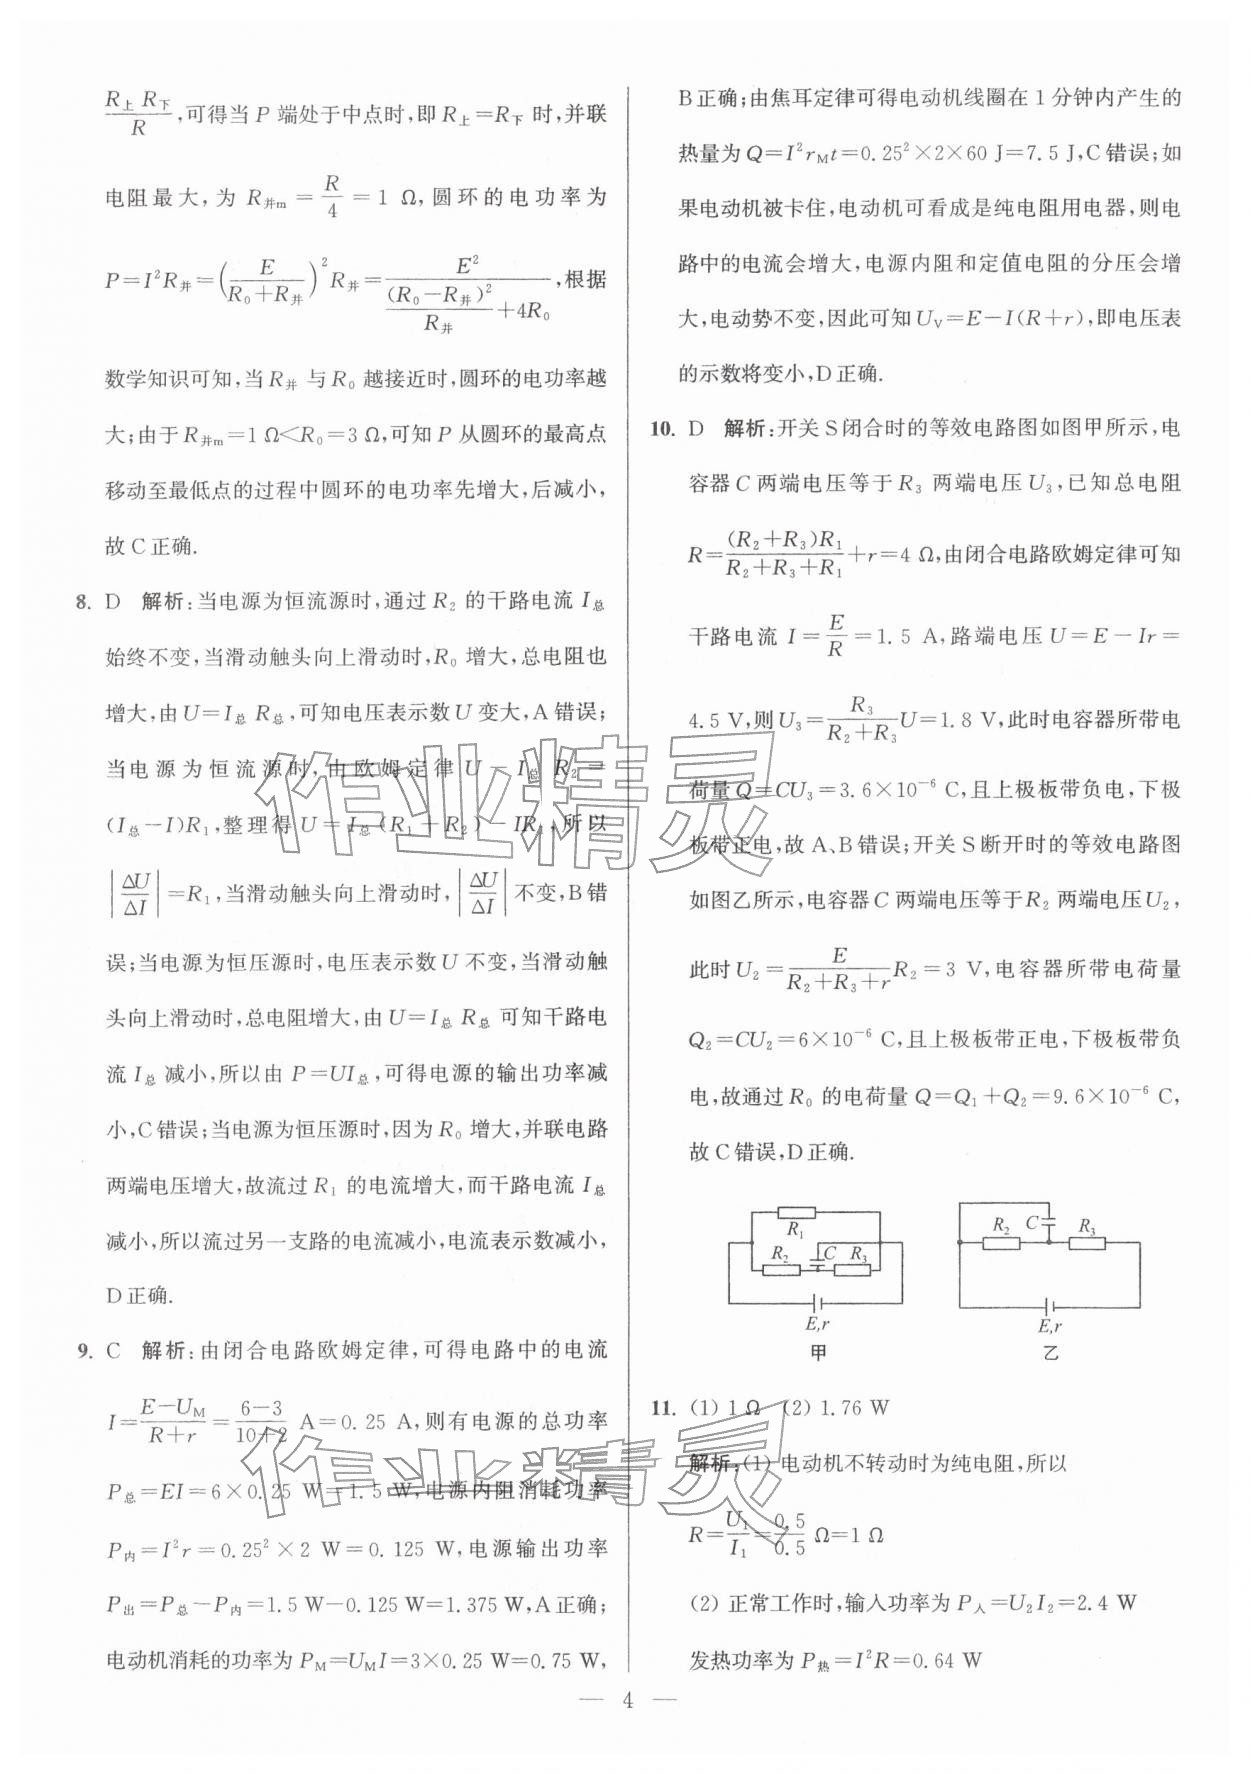 R上 R下/R,可得当 P 端处于中点时,即 R上=R下 时,并联
电阻最大,为 R并m=R/4=1 Ω,圆环的电功率为
P=I²R并=(E/(R₀+R并))²R并=E²/((R₀-R并)²/R并+4R₀),根据
数学知识可知,当 R并 与 R₀ 越接近时,圆环的电功率越
大;由于 R并m=1 Ω<R₀=3 Ω,可知 P 从圆环的最高点
移动至最低点的过程中圆环的电功率先增大,后减小,
故 C 正确.
8. D 解析:当电源为恒流源时,通过 R₂ 的干路电流 I总
始终不变,当滑动触头向上滑动时,R₀ 增大,总电阻也
增大,由 U=I总 R总,可知电压表示数 U 变大,A 错误;
当电源为恒流源时,由欧姆定律 U-I总 R₂=
(I总-I)R₁,整理得 U=I总(R₁+R₂)-IR₁,所以
|ΔU/ΔI|=R₁,当滑动触头向上滑动时,|ΔU/ΔI|不变,B 错
误;当电源为恒压源时,电压表示数 U 不变,当滑动触
头向上滑动时,总电阻增大,由 U=I总 R总 可知干路电
流 I总 减小,所以由 P=UI总,可得电源的输出功率减
小,C 错误;当电源为恒压源时,因为 R₀ 增大,并联电路
两端电压增大,故流过 R₁ 的电流增大,而干路电流 I总
减小,所以流过另一支路的电流减小,电流表示数减小,
D 正确.
9. C 解析:由闭合电路欧姆定律,可得电路中的电流
I=(E-U_M)/(R+r)=(6-3)/(10+2) A=0.25 A,则有电源的总功率
P总=EI=6×0.25 W=1.5 W,电源内阻消耗功率
P内=I²r=0.25²×2 W=0.125 W,电源输出功率
P出=P总-P内=1.5 W-0.125 W=1.375 W,A 正确;
电动机消耗的功率为 P_M=U_MI=3×0.25 W=0.75 W,
B 正确;由焦耳定律可得电动机线圈在 1 分钟内产生的
热量为 Q=I²r_Mt=0.25²×2×60 J=7.5 J,C 错误;如
果电动机被卡住,电动机可看成是纯电阻用电器,则电
路中的电流会增大,电源内阻和定值电阻的分压会增
大,电动势不变,因此可知 U_V=E-I(R+r),即电压表
的示数将变小,D 正确.
10. D 解析:开关 S 闭合时的等效电路图如图甲所示,电
容器 C 两端电压等于 R₃ 两端电压 U₃,已知总电阻
R=(R₂+R₃)R₁/(R₂+R₃+R₁)+r=4 Ω,由闭合电路欧姆定律可知
干路电流 I=E/R=1.5 A,路端电压 U=E-Ir=
4.5 V,则 U₃=R₃/(R₂+R₃)U=1.8 V,此时电容器所带电
荷量 Q=CU₃=3.6×10⁻⁶ C,且上极板带负电,下极
板带正电,故 A、B 错误;开关 S 断开时的等效电路图
如图乙所示,电容器 C 两端电压等于 R₂ 两端电压 U₂,
此时 U₂=E/(R₂+R₃+r)R₂=3 V,电容器所带电荷量
Q₂=CU₂=6×10⁻⁶ C,且上极板带正电,下极板带负
电,故通过 R₀ 的电荷量 Q=Q₁+Q₂=9.6×10⁻⁶ C,
故 C 错误,D 正确.
R₁
R₂ C R₃
E,r
甲
R₂ C R₃
E,r
乙
11. (1) 1 Ω (2) 1.76 W
解析:(1) 电动机不转动时为纯电阻,所以
R=U₁/I₁=0.5/0.5 Ω=1 Ω
(2) 正常工作时,输入功率为 P入=U₂I₂=2.4 W
发热功率为 P热=I²R=0.64 W
— 4 —
作业精灵
作业精灵